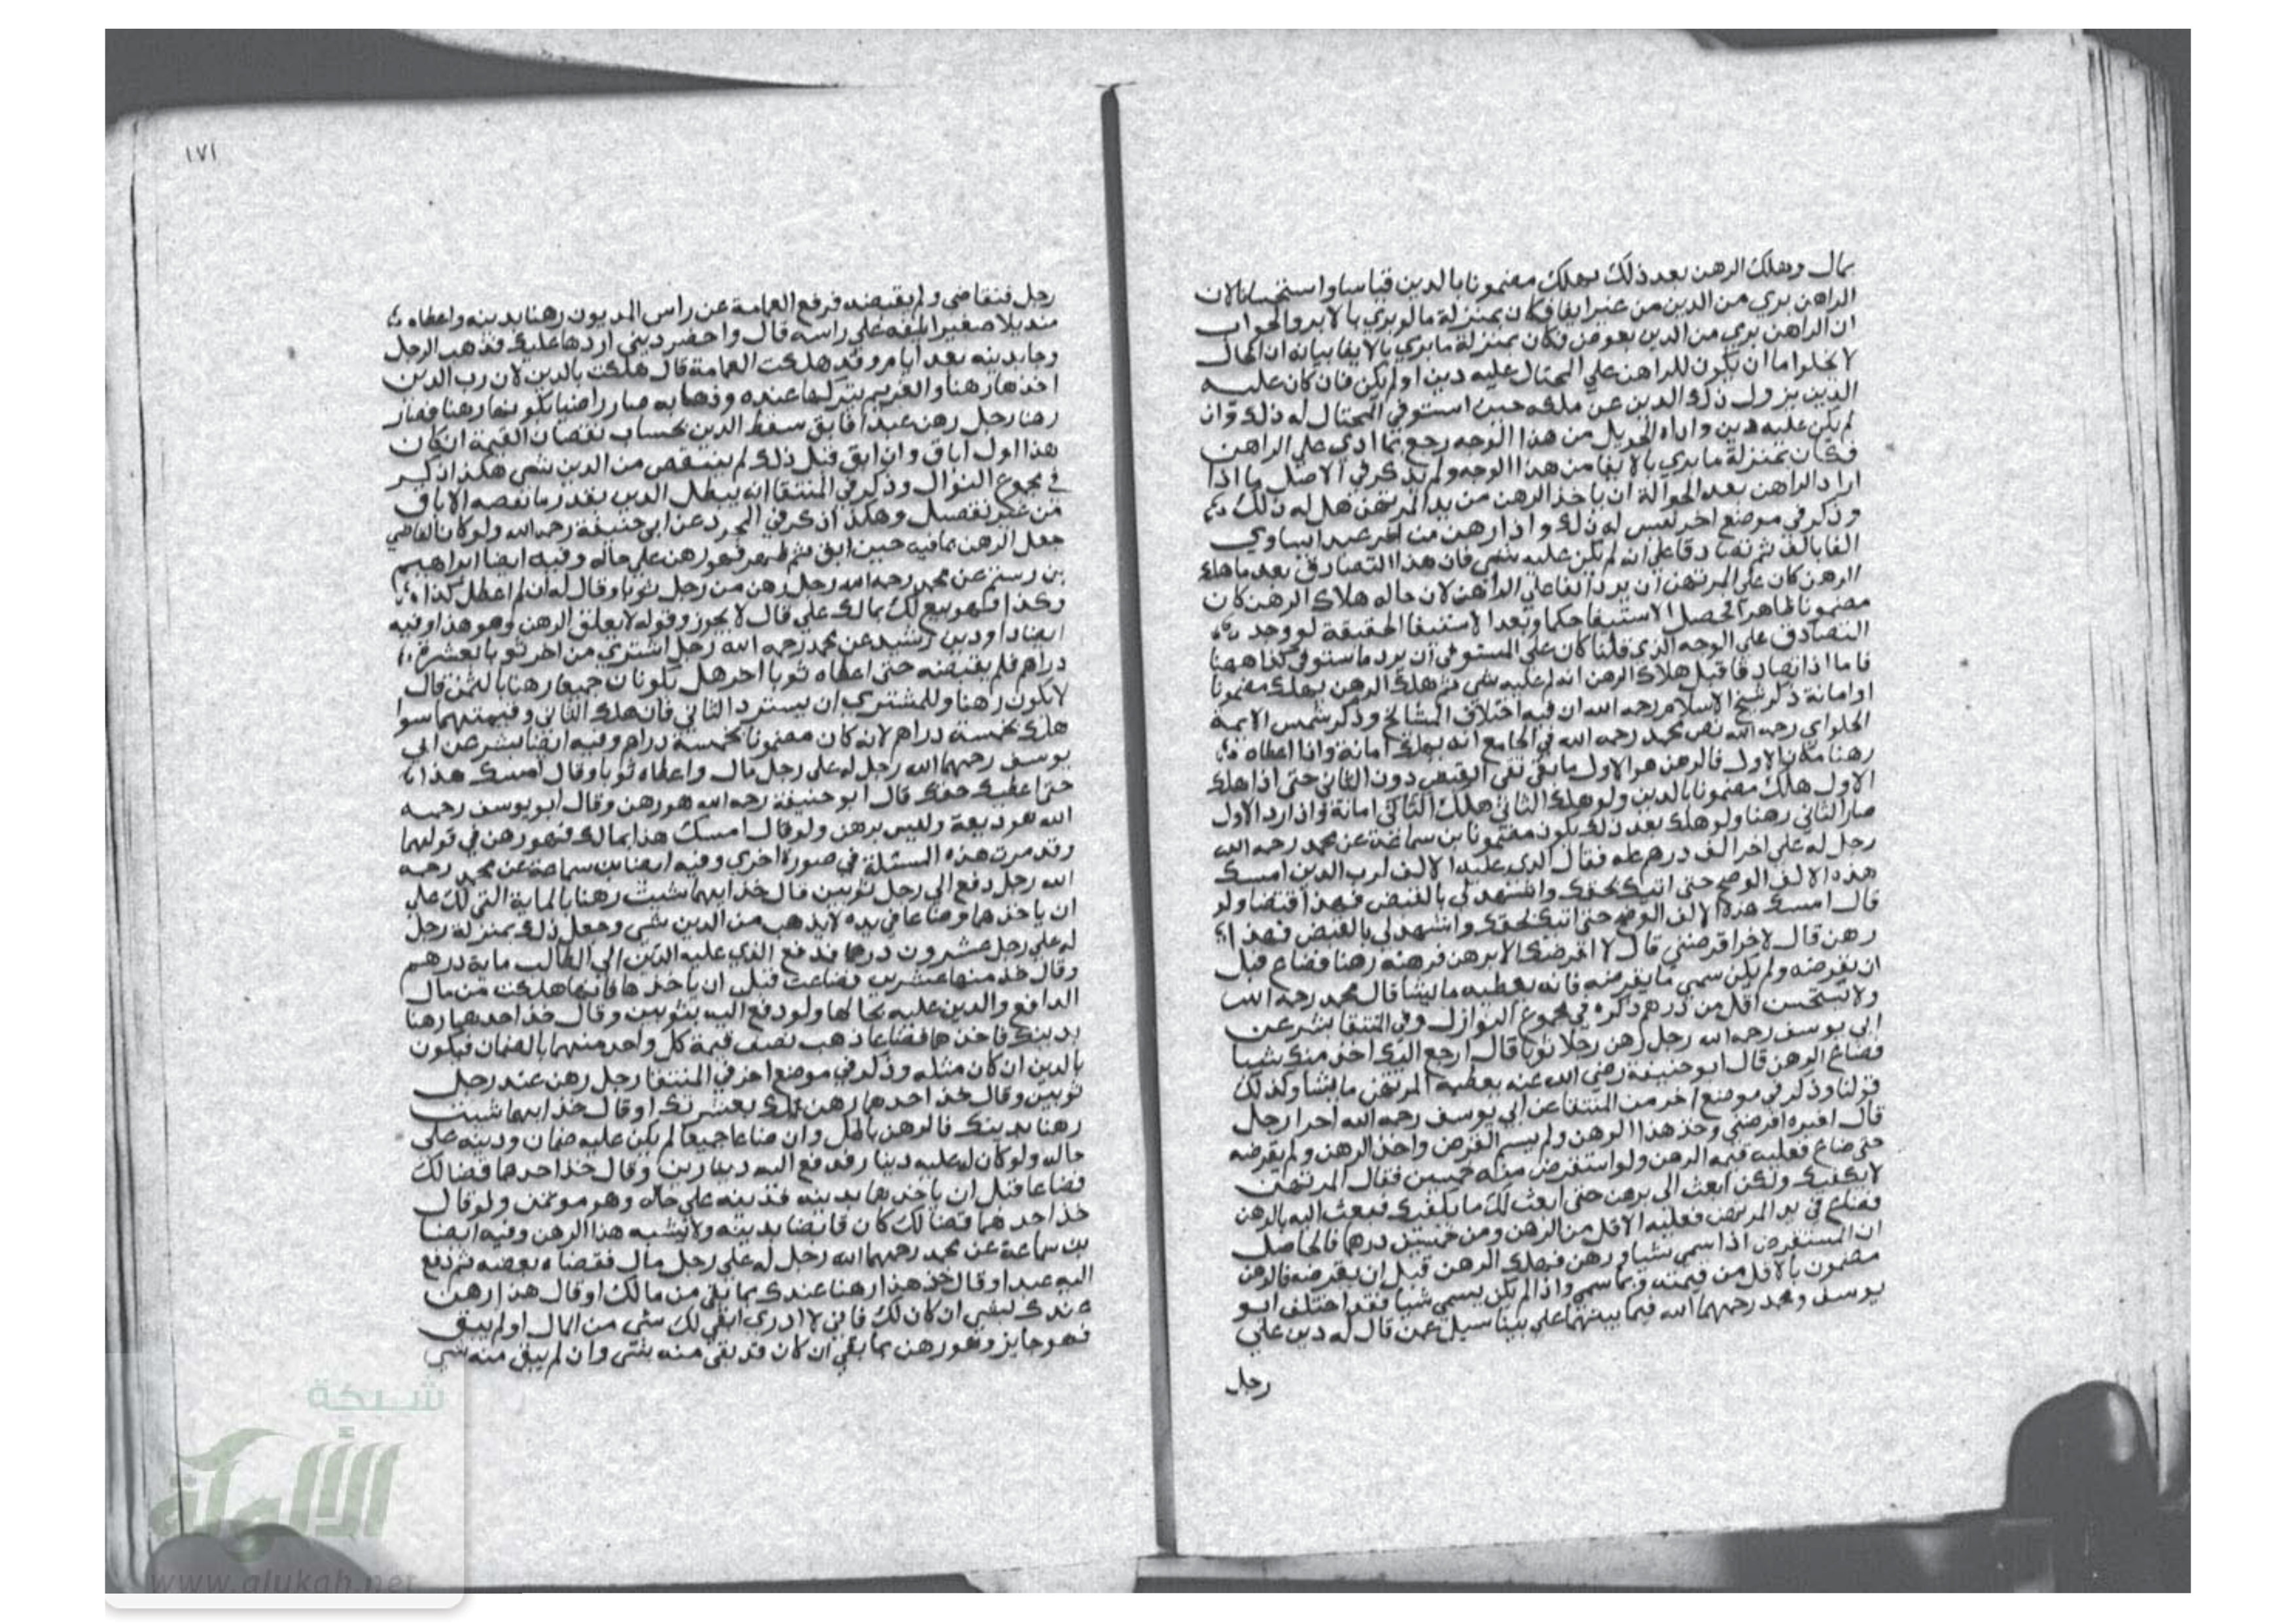 بمال وهلك الرهن بعد ذلك يهلك مضمونا بالدين قياسا واستحسانا لان
الراهن بري من الدين من غير ايفا فكان بمنزلة ما لو بري بالابرا والجواب
ان الراهن بري من الدين بعوض فكان بمنزلة ما بري بالايفا بيانه ان الحال
لا يخلوا ما ان يكون للراهن علي المحتال عليه دين او لم يكن فان كان عليه
الدين يزول ذلك الدين عن ملكه حين استوفي المحتال له ذلك وان
لم يكن عليه دين واداه الحويل من هذا الوجه رجع بما ادي علي الراهن
فكان بمنزلة ما بري بالايفا من هذا الوجه ولم يذكر في الاصل ما اذا
اراد الراهن بعد الحوالة ان ياخذ الرهن من يد المرتهن هل له ذلك
وذكر في موضع اخر ليس له ذلك واذا رهن من اخر عبدا يساوي
الفا بالف ثم تصادقا علي انه لم يكن عليه شي فان هذا التصادق بعد ما هلك
الرهن كان علي المرتهن ان يرد الفا علي الراهن لان حاله هلاك الرهن كان
مضمونا ظاهرا فحصل الاستيفا حكما وبعد الاستيفا الحقيقة لو وجد
التصادق علي الوجه الذي قلنا كان علي المستوفي ان يرد ما ستوفي كذا ههنا
فاما اذا تصادقا قبل هلاك الرهن انه لم عليه شي ثم هلك الرهن يهلك مضمونا
او امانة ذكر شيخ الاسلام رحمه الله ان فيه اختلاف المشايخ وذكر شمس الايمة
الحلواي رحمه الله نص محمد رحمه الله في الجامع انه يهلك امانة واذا اعطاه
رهنا مكان الاول فالرهن هو الاول ما بقي القبض دون الثاني حتي اذا هلك
الاول هلك مضمونا بالدين ولو هلك الثاني هلك الثاني امانة واذا رد الاول
صار الثاني رهنا ولو هلك بعد ذلك يكون مضمونا بن سماعة عن محمد رحمه الله
رجل له علي اخر الف درهم فقال الذي عليه الالف لرب الدين امسك
هذه الالف الوضح حتي اتيك بحقك واشهد لي بالقبض فهذا اقتضا ولو
قال امسك هذه الالف الوضح حتي اتيك بحقك واشهد لي بالقبض فهذا
رهن قال لاخر اقرضني قال لا اقرضك الا برهن فرهنه رهنا فضاع قبل
ان يقرضه ولم يكن سمي ما يقرضه فانه يعطيه ما يشا قال محمد رحمه الله
ولا يستحسن اقل من درهم ذكره في مجموع النوازل وفي المنتقا بشر عن
ابي يوسف رحمه الله رجل رهن رجلا ثوبا قال ارجع الذي اخذ منك شيا
فضاع الرهن قال ابو حنيفة رضي الله عنه يعطيه المرتهن ما يشا وكذلك
قولنا وذكر في موضع اخر من المنتقا عن ابي يوسف رحمه الله اخرا رجل
قال لغيره اقرضني وخذ هذا الرهن ولم يسم القرض واخذ الرهن ولم يقرضه
حتي ضاع فعليه قيمة الرهن ولو استقرض منه خمسين فقال المرتهن
لا يكفيك ولكن ابعث الي برهن حتي ابعث لك ما يكفيك فبعث اليه بالرهن
فضاع في يد المرتهن فعليه الاقل من الرهن ومن خمسين درهما فالحاصل
ان المستقرض اذا سمي شيا ورهن فهلك الرهن قبل ان يقرضه فالرهن
مضمون بالاقل من قيمته وبما سمي واذا لم يكن يسمي شيا فقد اختلف ابو
يوسف ومحمد رحمهما الله فيما بينهما علي بينا سيل عن قال له دين علي
رجل
١٧١
رجل فتقاضي ولم يقبضه فرفع العمامة عن راس المديون رهنا بدينه واعطاه
منديلا صغيرا يلفه علي راسه قال واحضر ديني اردها عليك فذهب الرجل
وجا بدينه بعد ايام وقد هلكت العمامة قال هلكت بالدين لان رب الدين
اخذها رهنا والغريم بتركها عنده وذهابه صار راضيا بكونها رهنا فصار
رهنا رجل رهن عبدا فابق سقط الدين بحساب نقصان القيمة ان كان
هذا اول اباق وان ابق قبل ذلك لم ينتقص من الدين شي هكذا ذكر
في مجموع النوازل وذكر في المنتقا انه يبطل الدين بقدر ما نقصه الاباق
من غير تفصيل وهكذا ذكر في المجرد عن ابي حنيفة رحمه الله ولو كان القاضي
جعل الرهن بما فيه حين ابق ثم ظهر فهو رهن علي حاله وفيه ايضا ابراهيم
بن رستم عن محمد رحمه الله رجل رهن من رجل ثوبا وقال له ان لم اعطك كذا
وكذا فهو بيع لك بمالك علي قال لا يجوز وقوله لا يغلق الرهن وهو هذا وفيه
ايضا داود بن رشيد عن محمد رحمه الله رجل اشتري من اخر ثوبا بعشرة
دراهم فلم يقبضه حتي اعطاه ثوبا اخر هل يكونان جميعا رهنا بالثمن قال
لا يكون رهنا وللمشتري ان يسترد الثاني فان هلك الثاني وقيمتهما سوا
هلك بخمسة دراهم لانه كان مضمونا بخمسة دراهم وفيه ايضا بشر عن ابي
يوسف رحمهما الله رجل له علي رجل مال واعطاه ثوبا وقال امسك هذا
حتي اعطيك حقك قال ابو حنيفة رحمه الله هو رهن وقال ابو يوسف رحمه
الله هو وديعة وليس برهن ولو قال امسك هذا بمالك فهو رهن في قولهما
وقد مرت هذه المسئلة في صورة اخري وفيه ايضا بن سماعة عن محمد رحمه
الله رجل دفع الي رجل ثوبين قال خذ ايهما شيت رهنا بالماية التي لك علي
ان ياخذهما وضاعا في يده لا يذهب من الدين شي وجعل ذلك بمنزلة رجل
له علي رجل عشرون درهما فدفع الذي عليه الدين الي الطالب ماية درهم
وقال خذ منها عشرين فضاعت قبل ان ياخذها فانها هلكت من مال
الدافع والدين عليه بحالها ولو دفع اليه بثوبين وقال خذ احدهما رهنا
بدينك فاخذهما فضاعا ذهب نصف قيمة كل واحد منهما بالضمان فيكون
بالدين ان كان مثله وذكر في موضع اخر في المنتقا رجل رهن عند رجل
ثوبين وقال خذ احدهما رهن لك بعشرتك او قال خذ ايهما شيت
رهنا بدينك فالرهن باطل وان ضاعا جميعا لم يكن عليه ضمان ودينه علي
حاله ولو كان له عليه دينار فدفع اليه دينارين وقال خذ احدهما قضا لك
فضاعا قبل ان ياخذ بها بدينه فدينه علي حاله وهو موتمن ولو قال
خذ احدهما قضا لك كان قابضا بدينه ولا يشبه هذا الرهن وفيه ايضا
بن سماعة عن محمد رحمهما الله رجل له علي رجل مال فقضاه بعضه ثم دفع
اليه عبدا وقال خذ هذا رهنا عندك بما بقي من مالك او قال هذا رهن
عندك لبقي ان كان لك فاني لا ادري ابقي لك شي من المال او لم يبق
فهو جايز وهو رهن بما بقي ان كان قد بقي منه شي وان لم يبق منه شي
شبكة
الألوكة
www.alukah.net